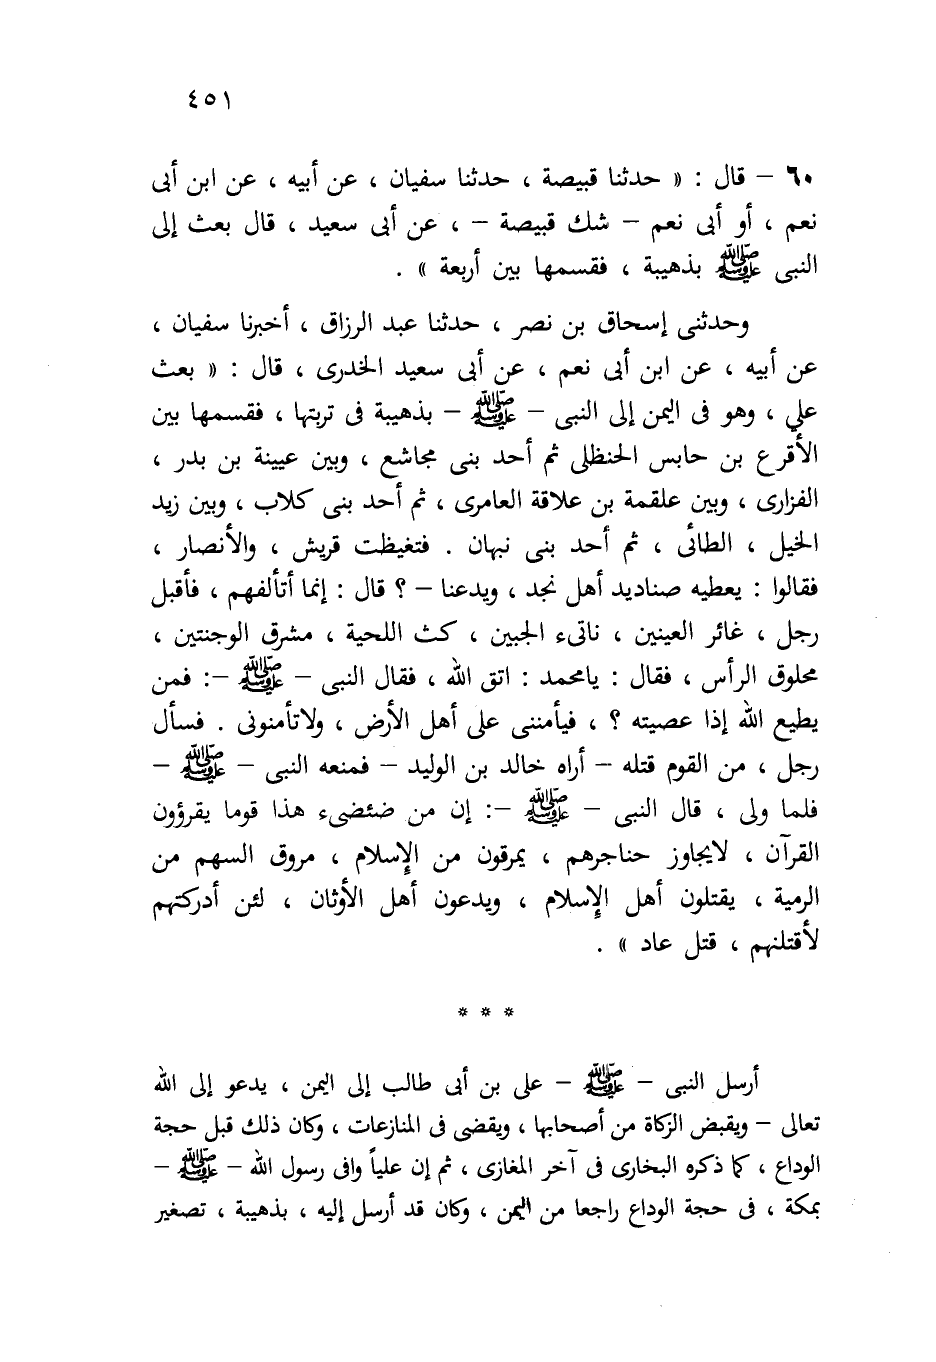 ٤٥١
٦٠ – قال : « حدثنا قبيصة ، حدثنا سفيان ، عن أبيه ، عن ابن أبى
نعم ، أو أبى نعم – شك قبيصة – ، عن أبى سعيد ، قال بعث إلى
النبى ﷺ بذهيبة ، فقسمها بين أربعة » .
وحدثنى إسحاق بن نصر ، حدثنا عبد الرزاق ، أخبرنا سفيان ،
عن أبيه ، عن ابن أبى نعم ، عن أبى سعيد الخدرى ، قال : « بعث
علي ، وهو فى اليمن إلى النبى – ﷺ – بذهيبة فى تربتها ، فقسمها بين
الأقرع بن حابس الحنظلى ثم أحد بنى مجاشع ، وبين عيينة بن بدر ،
الفزارى ، وبين علقمة بن علاقة العامرى ، ثم أحد بنى كلاب ، وبين زيد
الخيل ، الطائى ، ثم أحد بنى نبهان . فتغيظت قريش ، والأنصار ،
فقالوا : يعطيه صناديد أهل نجد ، ويدعنا – ؟ قال : إنما أتألفهم ، فأقبل
رجل ، غائر العينين ، ناتىء الجبين ، كث اللحية ، مشرق الوجنتين ،
محلوق الرأس ، فقال : يامحمد : اتق الله ، فقال النبى – ﷺ –: فمن
يطيع الله إذا عصيته ؟ ، فيأمننى على أهل الأرض ، ولاتأمنونى . فسأل
رجل ، من القوم قتله – أراه خالد بن الوليد – فمنعه النبى – ﷺ –
فلما ولى ، قال النبى – ﷺ –: إن من ضئضىء هذا قوما يقرؤون
القرآن ، لايجاوز حناجرهم ، يمرقون من الإسلام ، مروق السهم من
الرمية ، يقتلون أهل الإسلام ، ويدعون أهل الأوثان ، لئن أدركتهم
لأقتلنهم ، قتل عاد » .
* * *
أرسل النبى – ﷺ – على بن أبى طالب إلى اليمن ، يدعو إلى الله
تعالى – ويقبض الزكاة من أصحابها ، ويقضى فى المنازعات ، وكان ذلك قبل حجة
الوداع ، كما ذكره البخارى فى آخر المغازى ، ثم إن علياً وافى رسول الله – ﷺ –
بمكة ، فى حجة الوداع راجعا من اليمن ، وكان قد أرسل إليه ، بذهيبة ، تصغير